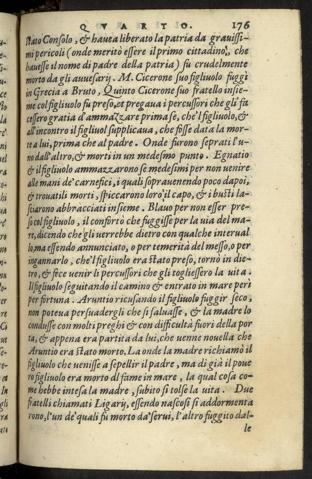 QVARTO. 176
stato Consolo, & haueua liberato la patria da grauissi-
mi pericoli (onde meritò essere il primo cittadino, che
hauesse il nome di padre della patria) fu crudelmente
morto da gli auuersarij. M. Cicerone suo figliuolo fuggì
in Grecia a Bruto, Quinto Cicerone suo fratello insie-
me col figliuolo fu preso, et pregaua i percussori che gli fa
cessero gratia d'ammazzare prima se, che'l figliuolo, &
all'incontro il figliuol supplicaua, che fosse data la mor-
te a lui, prima che al padre. Onde furono seprati l'u-
no dall'altro, & morti in un medesimo punto. Egnatio
& il figliuolo ammazzarono se medesimi per non uenire
alle mani de' carnefici, i quali soprauenendo poco dapoi,
& trouatili morti, spiccarono loro il capo, & i busti la-
sciarono abbracciati insieme. Blauo per non esser pre-
so col figliuolo, il confortò che fuggisse per la uia del ma-
re, dicendo che gli uerrebbe dietro con qualche interual
lo, ma essendo annunciato, o per temerità del messo, o per
ingannarlo, che'l figliuolo era stato preso, tornò in die-
tro, & fece uenir li percussori che gli togliessero la uita.
Il figliuolo seguitando il camino & entrato in mare perì
per fortuna. Aruntio ricusando il figliuolo fuggir seco,
non poteua persuadergli che si saluasse, & la madre lo
condusse con molti preghi & con difficultà fuori della por
ta, & appena era partita da lui, che uenne nouella che
Aruntio era stato morto. La onde la madre richiamò il
figliuolo che uenisse a sepellir il padre, ma di già il poue
ro figliuolo era morto di fame in mare, la qual cosa co-
me hebbe intesa la madre, subito si tolse la uita. Due
fratelli chiamati Ligarij, essendo nascosi si addormenta
rono, l'un de' quali fu morto da' serui, l'altro fuggito dal-
le